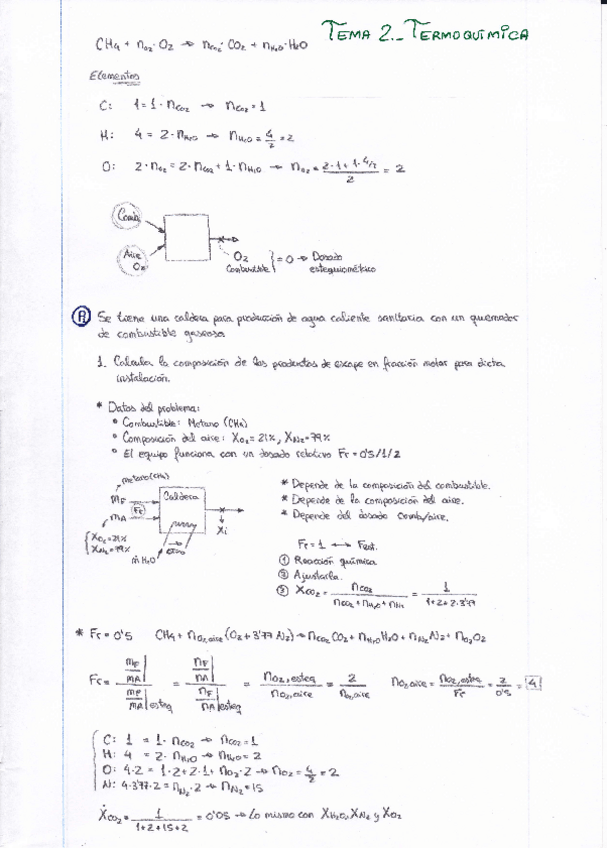 TEMA 2.- TERMOQUÍMICA
CH4 + nO2·O2 → nCO2·CO2 + nH2O·H2O
Elementos
C: 1=1·nCO2 → nCO2=1
H: 4=2·nH2O → nH2O=4/2=2
O: 2·nO2=2·nCO2+1·nH2O → nO2=(2·1+1·4/2)/2=2
Comb.
Aire
O2
O2
Combustible } =0 → Dosado
estequiométrico
P1 Se tiene una caldera para producción de agua caliente sanitaria con un quemador
de combustible gaseoso
1- Calcula la composición de los productos de escape en fracción molar para dicha
instalación.
* Datos del problema:
° Combustible: Metano (CH4)
° Composición del aire: XO2=21%, XN2=79%
° El equipo funciona con un dosado relativo Fr=0'5/1/2
metano(CH4)
mF
Fr
mA
Caldera
Xi
XO2=21%
XN2=79%
mH2O
* Depende de la composición del combustible.
* Depende de la composición del aire.
* Depende del dosado comb/aire.
Fr=1 ↔ Fest.
① Reacción química.
② Ajustarla.
③ XCO2=nCO2/(nCO2+nH2O+nN2)=1/(1+2+2·3'77)
* Fr=0'5 CH4+nO2,aire(O2+3'77N2)→nCO2CO2+nH2OH2O+nN2N2+nO2O2
Fr=(mF/mA|)/(mF/mA|esteq)=(nF/nA|)/(nF/nA|esteq)=nO2,esteq/nO2,aire=2/nO2,aire nO2,aire=nO2,esteq/Fr=2/0'5=4
C: 1=1·nCO2 → nCO2=1
H: 4=2·nH2O → nH2O=2
O: 4·2=1·2+2·1+nO2·2 → nO2=4/2=2
N: 4·3'77·2=nN2·2 → nN2=15
XCO2=1/(1+2+15+2)=0'05 → Lo mismo con XH2O, XN2 y XO2